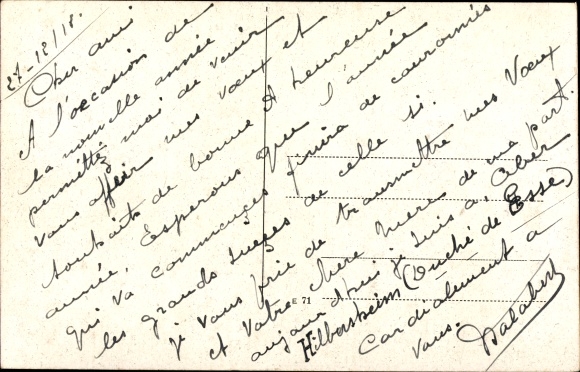 27-12/18.
Cher ami
A l'occasion de
la nouvelle année
permettez moi de venir
vous offrir mes vœux et
souhaits de bonne & heureuse
année, Esperons que l'année
qui va commencer finira de couronnés
les grands succès de celle si.
je vous prie de transmettre mes Vœux
et votre chere Mere de ma part.
aujourd'hui je suis a, Ober
Hilbersheim (Duché de Esse)
Cordialement a
vous.
Dalabert
E 71